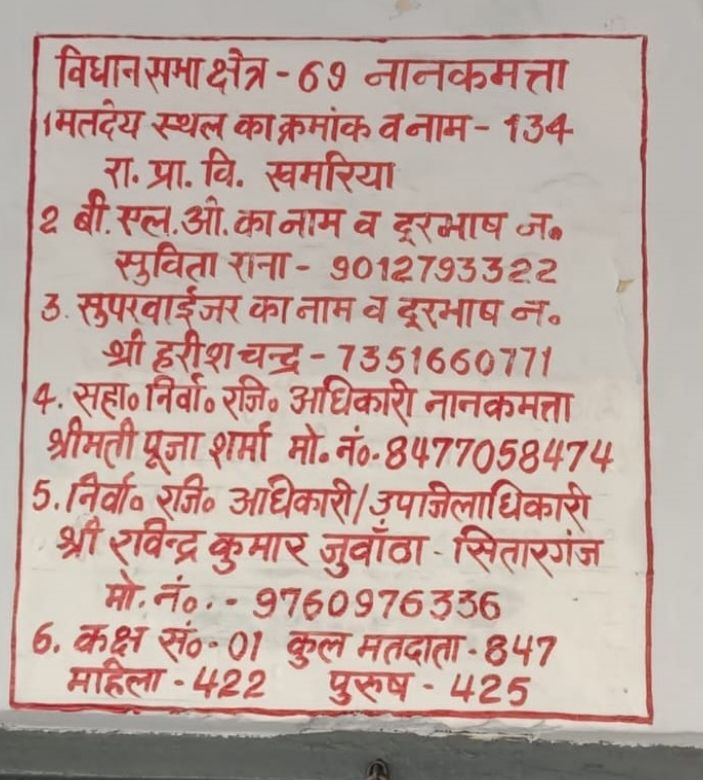 विधान सभा क्षेत्र - 69 नानकमत्ता
1 मतदेय स्थल का क्रमांक व नाम - 134
रा. प्रा. वि. खमरिया
2 बी. एल. ओ. का नाम व दूरभाष न॰
सुविता राना - 9012793322
3. सुपरवाईजर का नाम व दूरभाष न॰
श्री हरीश चन्द्र - 7351660771
4. सहा॰ निर्वा॰ रजि॰ अधिकारी नानकमत्ता
श्रीमती पूजा शर्मा मो॰ नं॰ - 8477058474
5. निर्वा॰ रजि॰ अधिकारी/उपाजिलाधिकारी
श्री रविन्द्र कुमार जुवाँठा - सितारगंज
मो. नं॰. - 9760976336
6. कक्ष सं॰ - 01 कुल मतदाता - 847
महिला - 422 पुरुष - 425